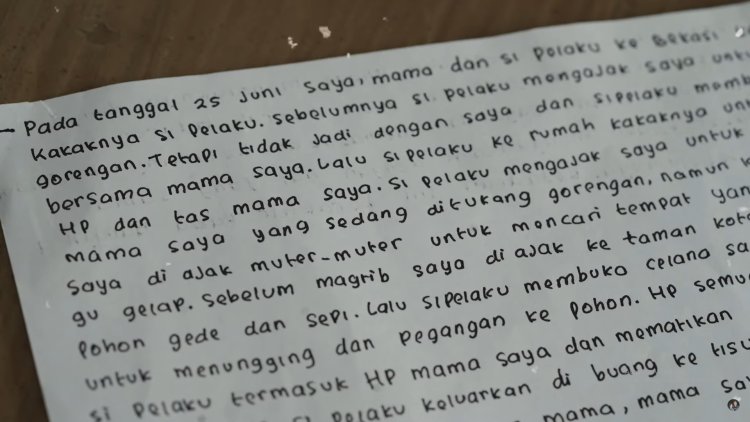 - Pada tanggal 25 Juni saya, mama dan si pelaku ke Bekasi
Kakaknya si pelaku. sebelumnya si pelaku mengajak saya
gorengan. Tetapi tidak jadi dengan saya dan sipelaku
bersama mama saya. Lalu sipelaku ke rumah kakaknya
HP dan tas mama saya. si pelaku mengajak saya untuk
mama saya yang sedang ditukang gorengan, namun
saya di ajak muter-muter untuk mencari tempat
gu gelap. sebelum magrib saya di ajak ke taman
pohon gede dan sepi. Lalu sipelaku membuka celana
untuk menungging dan pegangan ke pohon. HP
si pelaku termasuk HP mama saya dan mematikan
pelaku keluarkan di buang ke
mama, mama